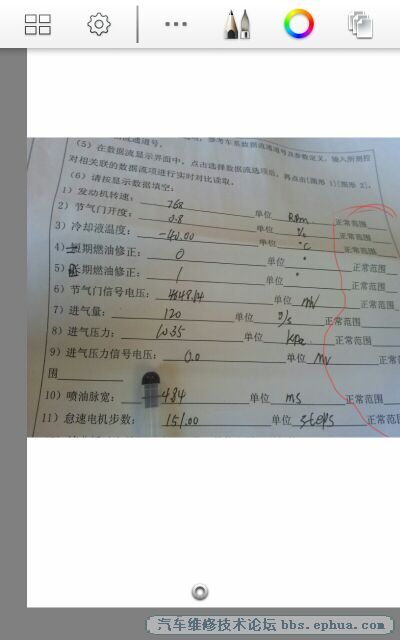 参考车系数据流通道号及参数定义,输入所测控
(5)在数据流显示界面中,点击选择数据流选项后,再点击[图形 1][图形 2],
对相关联的数据流项进行实时对比读取。
(6)请按显示数据填空:
1)发动机转速: 768 单位 RPm 正常范围
2)节气门开度: 0.8 单位 % 正常范围
3)冷却液温度: -40.00 单位 °C 正常范围
4) 期燃油修正: 0 单位 ° 正常范围
5)长期燃油修正: 1 单位 ° 正常范围
6)节气门信号电压: 单位 mV 正常范围
7)进气量: 120 单位 g/s 正常范围
8)进气压力: 1035 单位 kpa 正常范围
9)进气压力信号电压: 0.0 单位 mv 正常范
围
10)喷油脉宽: 484 单位 ms 正常范围
11)怠速电机步数: 151.00 单位 steps 正常范围
汽车维修技术论坛 bbs.ephua.com